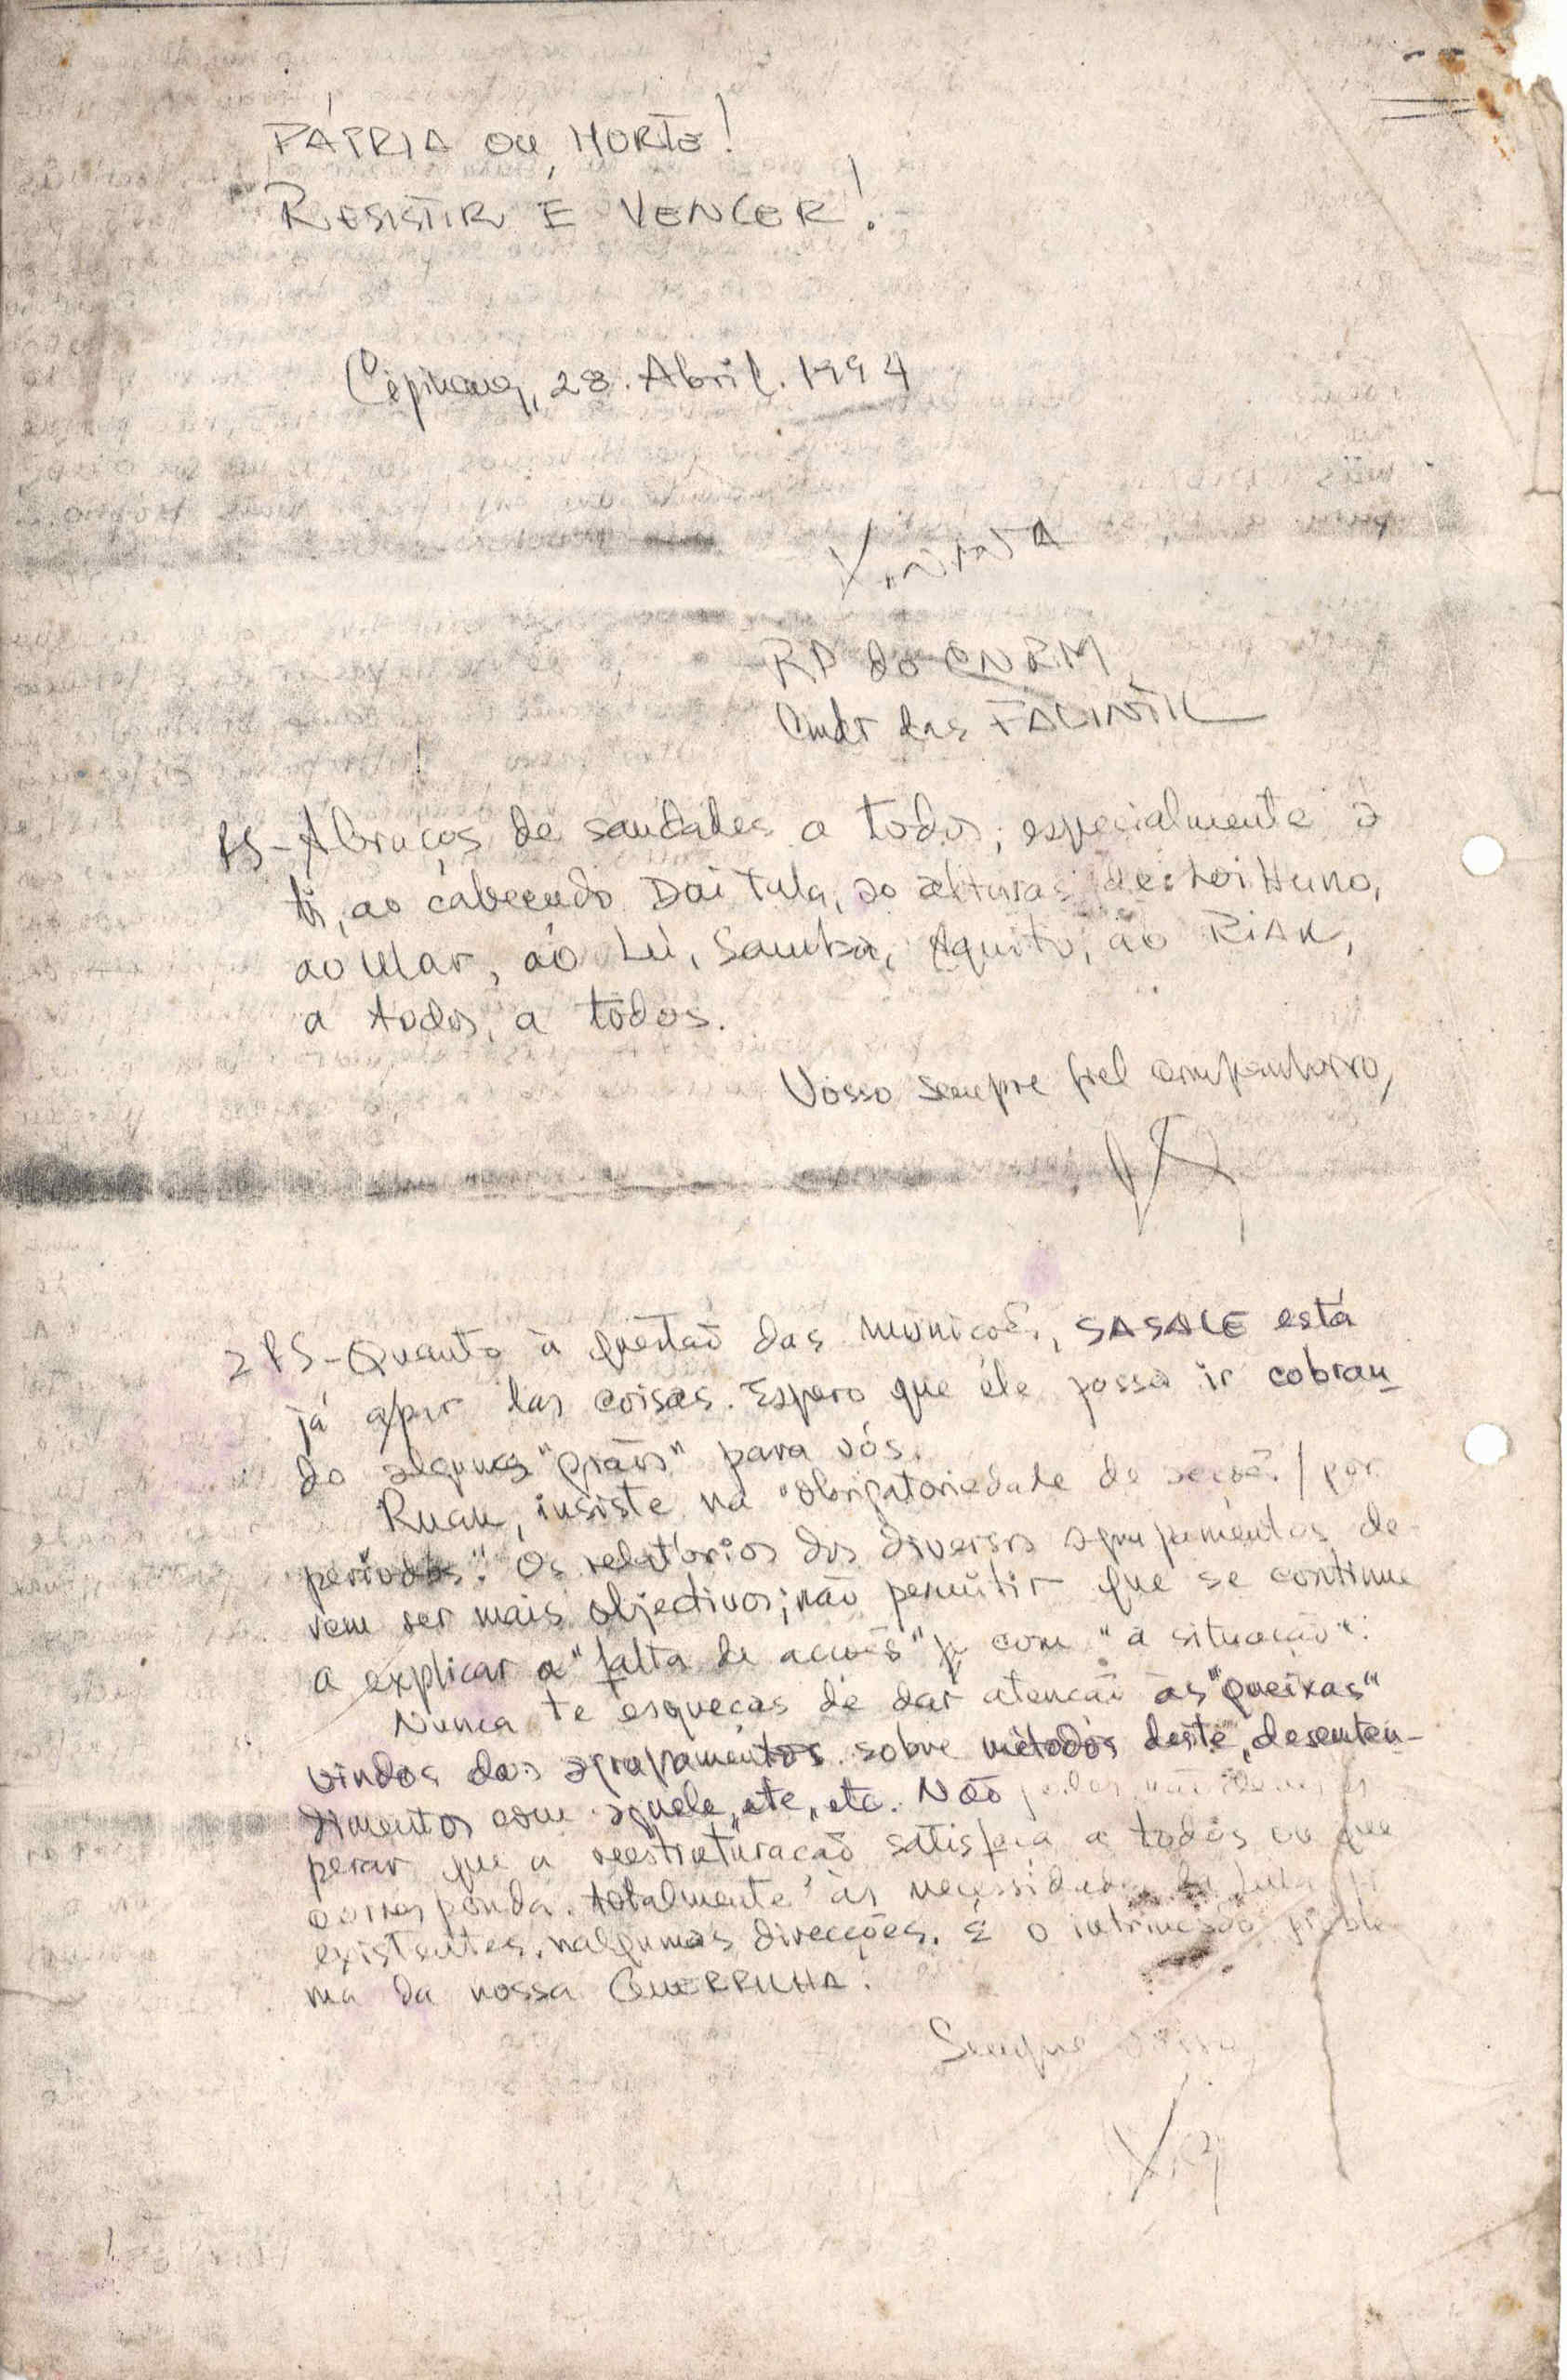 PÁTRIA OU MORTE!
RESISTIR É VENCER!
Cipinang, 28. Abril. 1994
XANANA
RP do CNRM
Cmdt das FALINTIL
PS - Abraços de saudades a todos, especialmente a
ti, ao cabeçudo Dai Tula, ao alturas de Loi Huno,
ao Ular, ao Lu, Samba, Aquito, ao RIAK,
a todos, a todos.
Vosso sempre fiel companheiro,
2 PS - Quanto à questão das munições, SASALE está
já a par das coisas. Espero que ele possa ir cobran-
do alguns "grãos" para vós.
Ruak, insiste na "obrigatoriedade de acções / por
períodos". Os relatórios dos diversos agrupamentos de-
vem ser mais objectivos; não permitir que se continue
a explicar a "falta de acções" com "a situação".
Nunca te esqueças de dar atenção às "queixas"
vindas dos agrupamentos sobre métodos deste, desenten-
dimentos com aquele, etc, etc. Não podes
perar que a reestruturação satisfaça a todos ou que
corresponda totalmente às necessidades da luta
existentes nalgumas direcções. É o intrínseco proble-
ma da nossa GUERRILHA.
Sempre vosso,